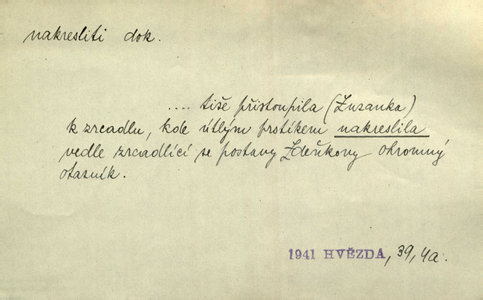 nakresliti dok.
.... tiše přistoupila (Zuzanka)
k zrcadlu, kde útlým prstíkem nakreslila
vedle zrcadlící se postavy Zdeňkovy ohromný
otazník.
1941 HVĚZDA, 39, 4a.